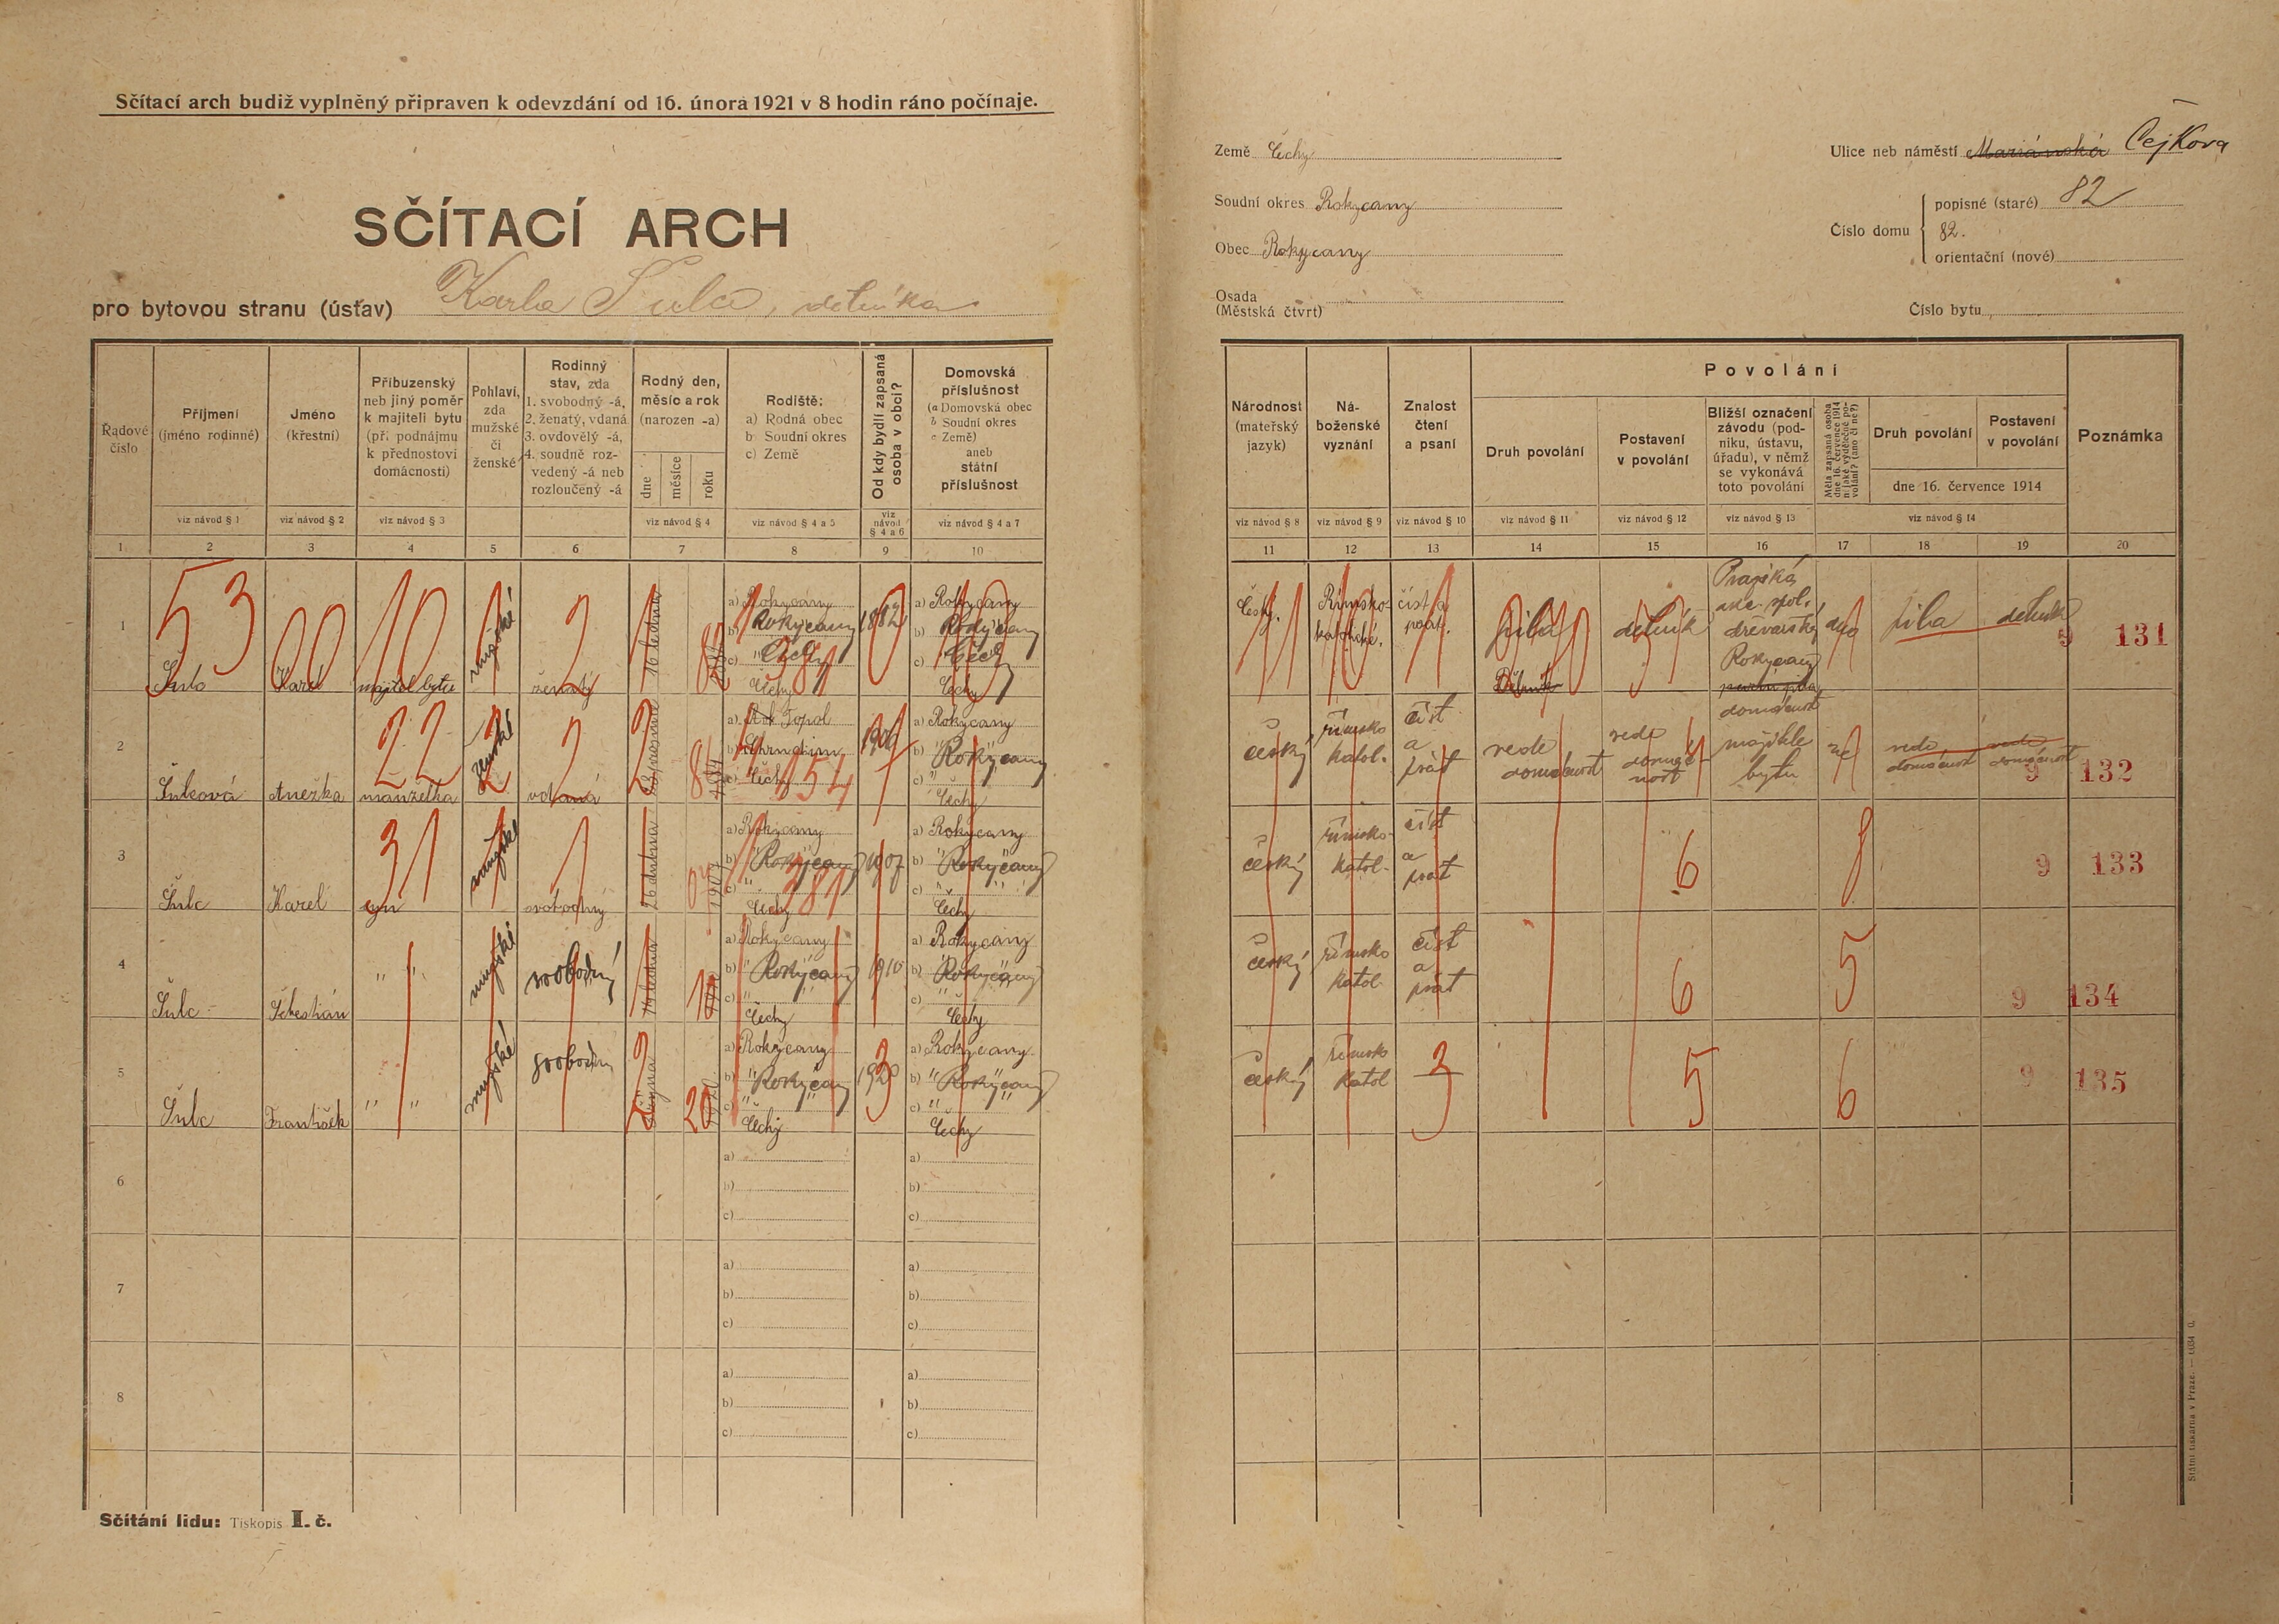 Sčítací arch budiž vyplněný připraven k odevzdání od 16. února 1921 v 8 hodin ráno počínaje.
SČÍTACÍ ARCH
pro bytovou stranu (ústav) Karla Šulce, dělníka
Země Čechy
Soudní okres Rokycany
Obec Rokycany
Osada
(Městská čtvrt)
Ulice neb náměstí Mariánská Čejkova
Číslo domu
popisné (staré) 82
82.
orientační (nové)
Číslo bytu
Řadové číslo
Příjmení (jméno rodinné)
Jméno (křestní)
Příbuzenský neb jiný poměr k majiteli bytu (při podnájmu k přednostovi domácnosti)
Pohlaví, zda mužské či ženské
Rodinný stav, zda 1. svobodný -á, 2. ženatý, vdaná 3. ovdovělý -á, 4. soudně rozvedený -á neb rozloučený -á
Rodný den, měsíc a rok (narozen -a)
dne měsíce roku
Rodiště: a) Rodná obec b) Soudní okres c) Země
Od kdy bydlí zapsaná osoba v obci?
Domovská příslušnost (a Domovská obec b Soudní okres c Země) aneb státní příslušnost
viz návod § 1
viz návod § 2
viz návod § 3
viz návod § 4
viz návod § 4 a 5
viz návod § 4 a 6
viz návod § 4 a 7
1 2 3 4 5 6 7 8 9 10
Národnost (mateřský jazyk)
Náboženské vyznání
Znalost čtení a psaní
Povolání
Druh povolání
Postavení v povolání
Bližší označení závodu (podniku, ústavu, úřadu), v němž se vykonává toto povolání
Měla zapsaná osoba dne 16. července 1914 n. jaké výdělečné povolání? (ano či ne?)
Druh povolání
Postavení v povolání
dne 16. července 1914
Poznámka
viz návod § 8
viz návod § 9
viz návod § 10
viz návod § 11
viz návod § 12
viz návod § 13
viz návod § 14
11 12 13 14 15 16 17 18 19 20
1 Šulc Karel majitel bytu mužské ženatý 16 ledna
a) Rokycany b) Rokycany c) Čechy 1882
a) Rokycany b) Rokycany c) Čechy
český. Římsko-katolické. číst a psát. pila dělník
Dělník
Pražská akc. spol. dřevařská Rokycany
ano pila dělník 9 131
2 Šulcová Anežka manželka ženské vdaná
a) Topol b) Chrudim c) Čechy
a) Rokycany b) Rokycany c) Čechy
český římsko katol. číst a psát vede domácnost vede domácnost
domácnost majitele bytu
ne vede domácnost vede domácnost 9 132
3 Šulc Karel syn mužské svobodný 26 dubna 1907
a) Rokycany b) Rokycany c) Čechy 1907
a) Rokycany b) Rokycany c) Čechy
český římsko-katol. číst a psát 6 8 9 133
4 Šulc Šebestián " " mužské svobodný
a) Rokycany b) Rokycany c) Čechy 1910
a) Rokycany b) Rokycany c) Čechy
český římsko katol. číst a psát 6 5 9 134
5 Šulc František " " mužské svobodný října 1920
a) Rokycany b) Rokycany c) Čechy 1920
a) Rokycany b) Rokycany c) Čechy
český římsko katol 3 5 6 9 135
6 a) b) c) a) b) c)
7 a) b) c) a) b) c)
8 a) b) c) a) b) c)
Sčítání lidu: Tiskopis I. č.